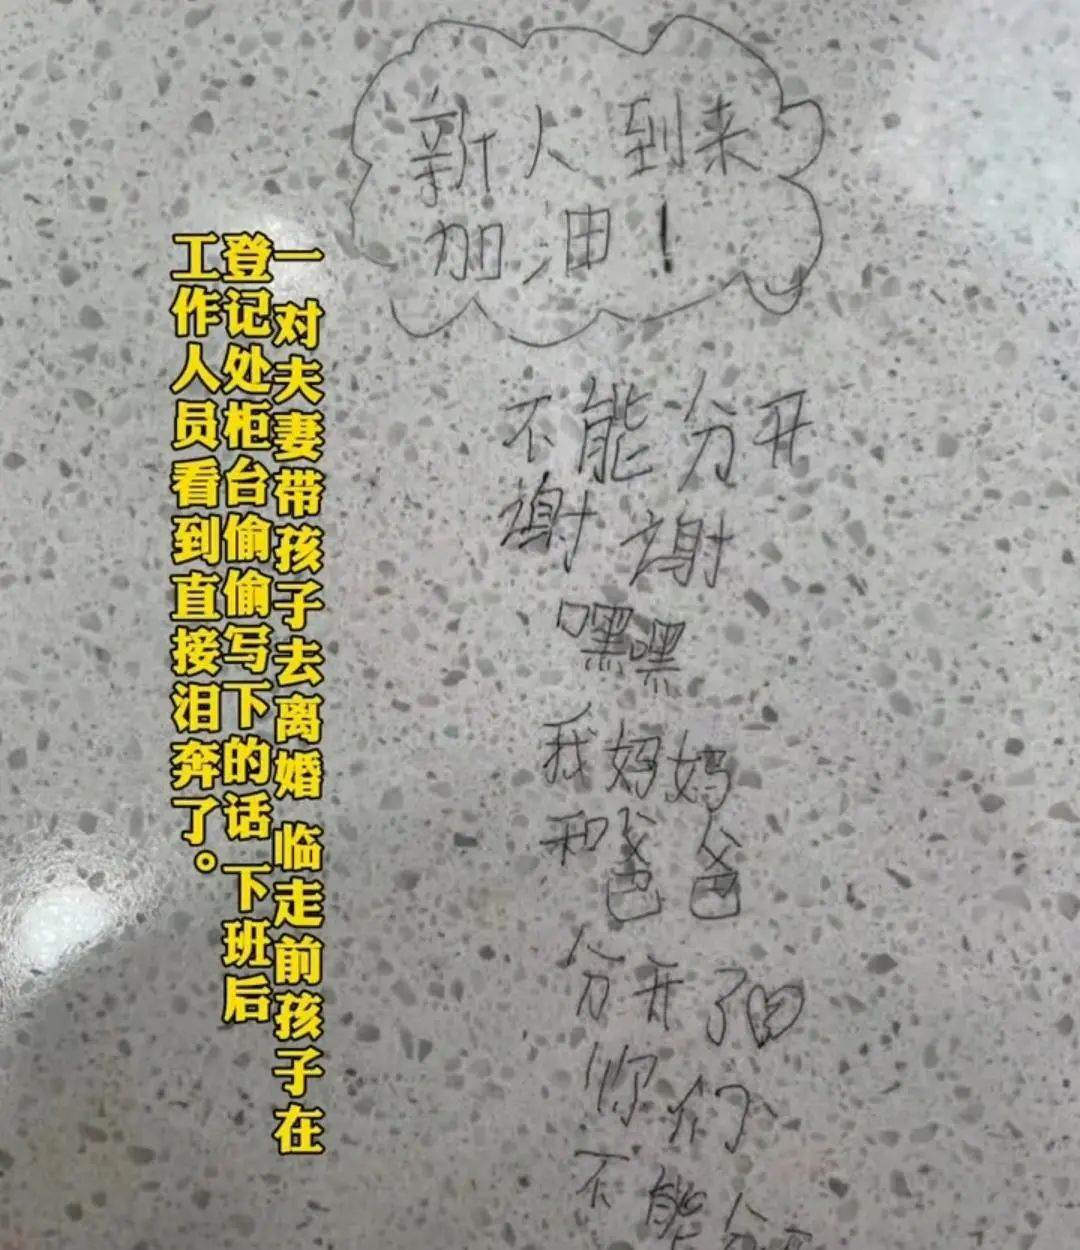 一对夫妻带孩子去离婚 临走前孩子在
登记处柜台偷偷写下的话 下班后
工作人员看到直接泪奔了。
新人到来
加油!
不能分开
谢谢
嘿嘿
我妈妈
和爸爸
分开了
你们
不能分